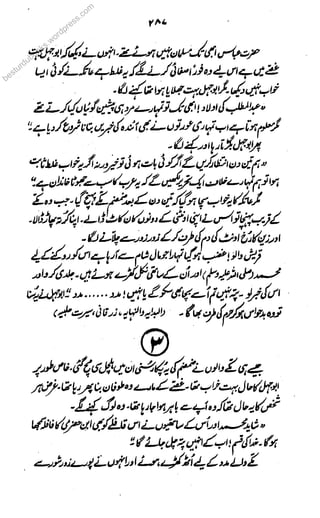 ۲۸۷
حضرت عباس ابھی تک مسلمان نہیں ہوئے تھے، انہوں نے دیکھا کہ ابوجہل بہت
غصے میں ہے اس لیے وہ فوراً صفائی کرنے لگے کہ یہ غلط ہے عاتکہ نے کوئی ایسا
خواب نہیں دیکھا۔ مگر ابوجہل بہت جھلایا ہوا تھا۔ کہنے لگا۔
"عبدالمطلب کی اولاد! ابھی تک تو تمہارے مرد ہی پیشین گوئیاں کیا کرتے تھے
مگر معلوم ہوتا ہے اب تمہاری عورتوں نے بھی آئندہ کی خبریں بتانا شروع کر دیا ہے"
ابوجہل بگڑتا رہا اور کہنے لگا۔
"ہم تین دن انتظار کریں گے اگر کوئی بات ہوئی تو خیر ورنہ اگر یہ خواب غلط ثابت
ہوا تو ہم تمہارے خلاف ایک تحریر لکھیں گے کہ یہ عرب کا سب سے جھوٹا خاندان ہے"
مگر عاتکہ کا یہ خواب سچا ہو گیا کہ تین دن کے بعد ضمضم مکے پہنچ گیا۔ جب وہ مکے
کے قریب پہنچا تو اس نے اپنی اونٹنی کے دونوں کان کاٹ ڈالے۔ اپنا کرتہ پھاڑ ڈالا۔
اور زین کا رخ اونٹ کی دم کی طرف کر کے زور زور سے چلانے لگا۔
قریش والو! غضب ہو گیا تمہارا جو مال شام سے آ رہا ہے اس کو روکنے کے لیے
محمد (صلی اللہ علیہ وسلم) اور ان کے ساتھی نکل کھڑے ہوئے ہیں۔ جلدی کرو اور
اس کی خبر لو۔ پتہ نہیں تم اسے بچا بھی سکو گے یا نہیں! مدد ...... مدد" ابوجہل نے یہ سنا
تو وہ بدحواس ہو کر حرم کی طرف بھاگا۔ (البدایہ والنہایہ، زرقانی، سیرت حلبیہ)
۳
جیسے ہی مکے والوں نے ضمضم کی یہ پکار سنی ان میں ہلچل سی مچ گئی۔ خاص طور پر
ابوجہل کا حال بہت خراب تھا۔ غصے کے مارے وہ طوفان بنا پھر رہا تھا۔ غرض ہر
شخص کا یہ حال تھا کہ وہ آپے سے باہر ہوا جا رہا تھا۔ وہ لوگ کہنے لگے۔
"شاید محمد اور اس کے ساتھیوں نے اس قافلے کو بھی ابن حضرمی کا قافلہ سمجھا
ہوگا۔ خدا کی قسم! اب کے انہیں پتہ چل جائے گا"
مکے والے مدد کے لیے اٹھ کھڑے ہوئے اور انہوں نے پورے زور شور سے